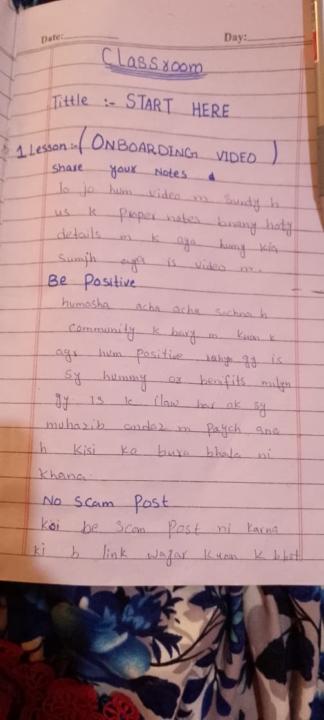 Date: Day:
Classroom
Tittle :- START HERE
1 Lesson :- (ONBOARDING VIDEO)
Share your Notes
Is jo hum video m sunty h
us k proper notes banany hoty
details m k aya humy kia
sumjh aya is video m.
Be Positive
humasha acha acha suchna h
community k bary m kuon k
agr hum positive rahyn gy is
sy hummy or benifits milyn
gy is k ilawa har ak sy
muhazib andaz m paych ana
h kisi ko bura bhala ni
khana.
No Scam Post
koi be scam Post ni karna
ki b link wagar kuon k